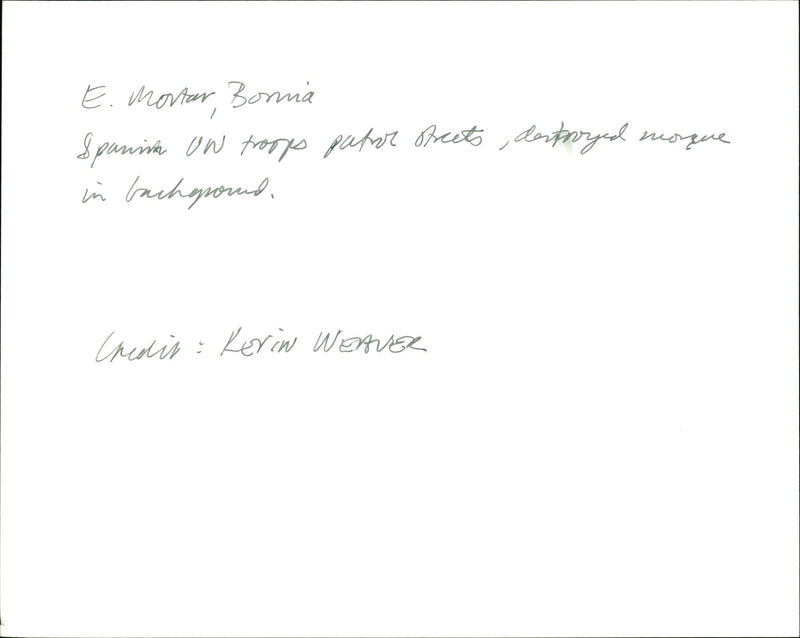 E. Mostar, Bosnia
Spanish UN troops patrol streets, destroyed mosque
in background.
Credit: Kevin WEAVER